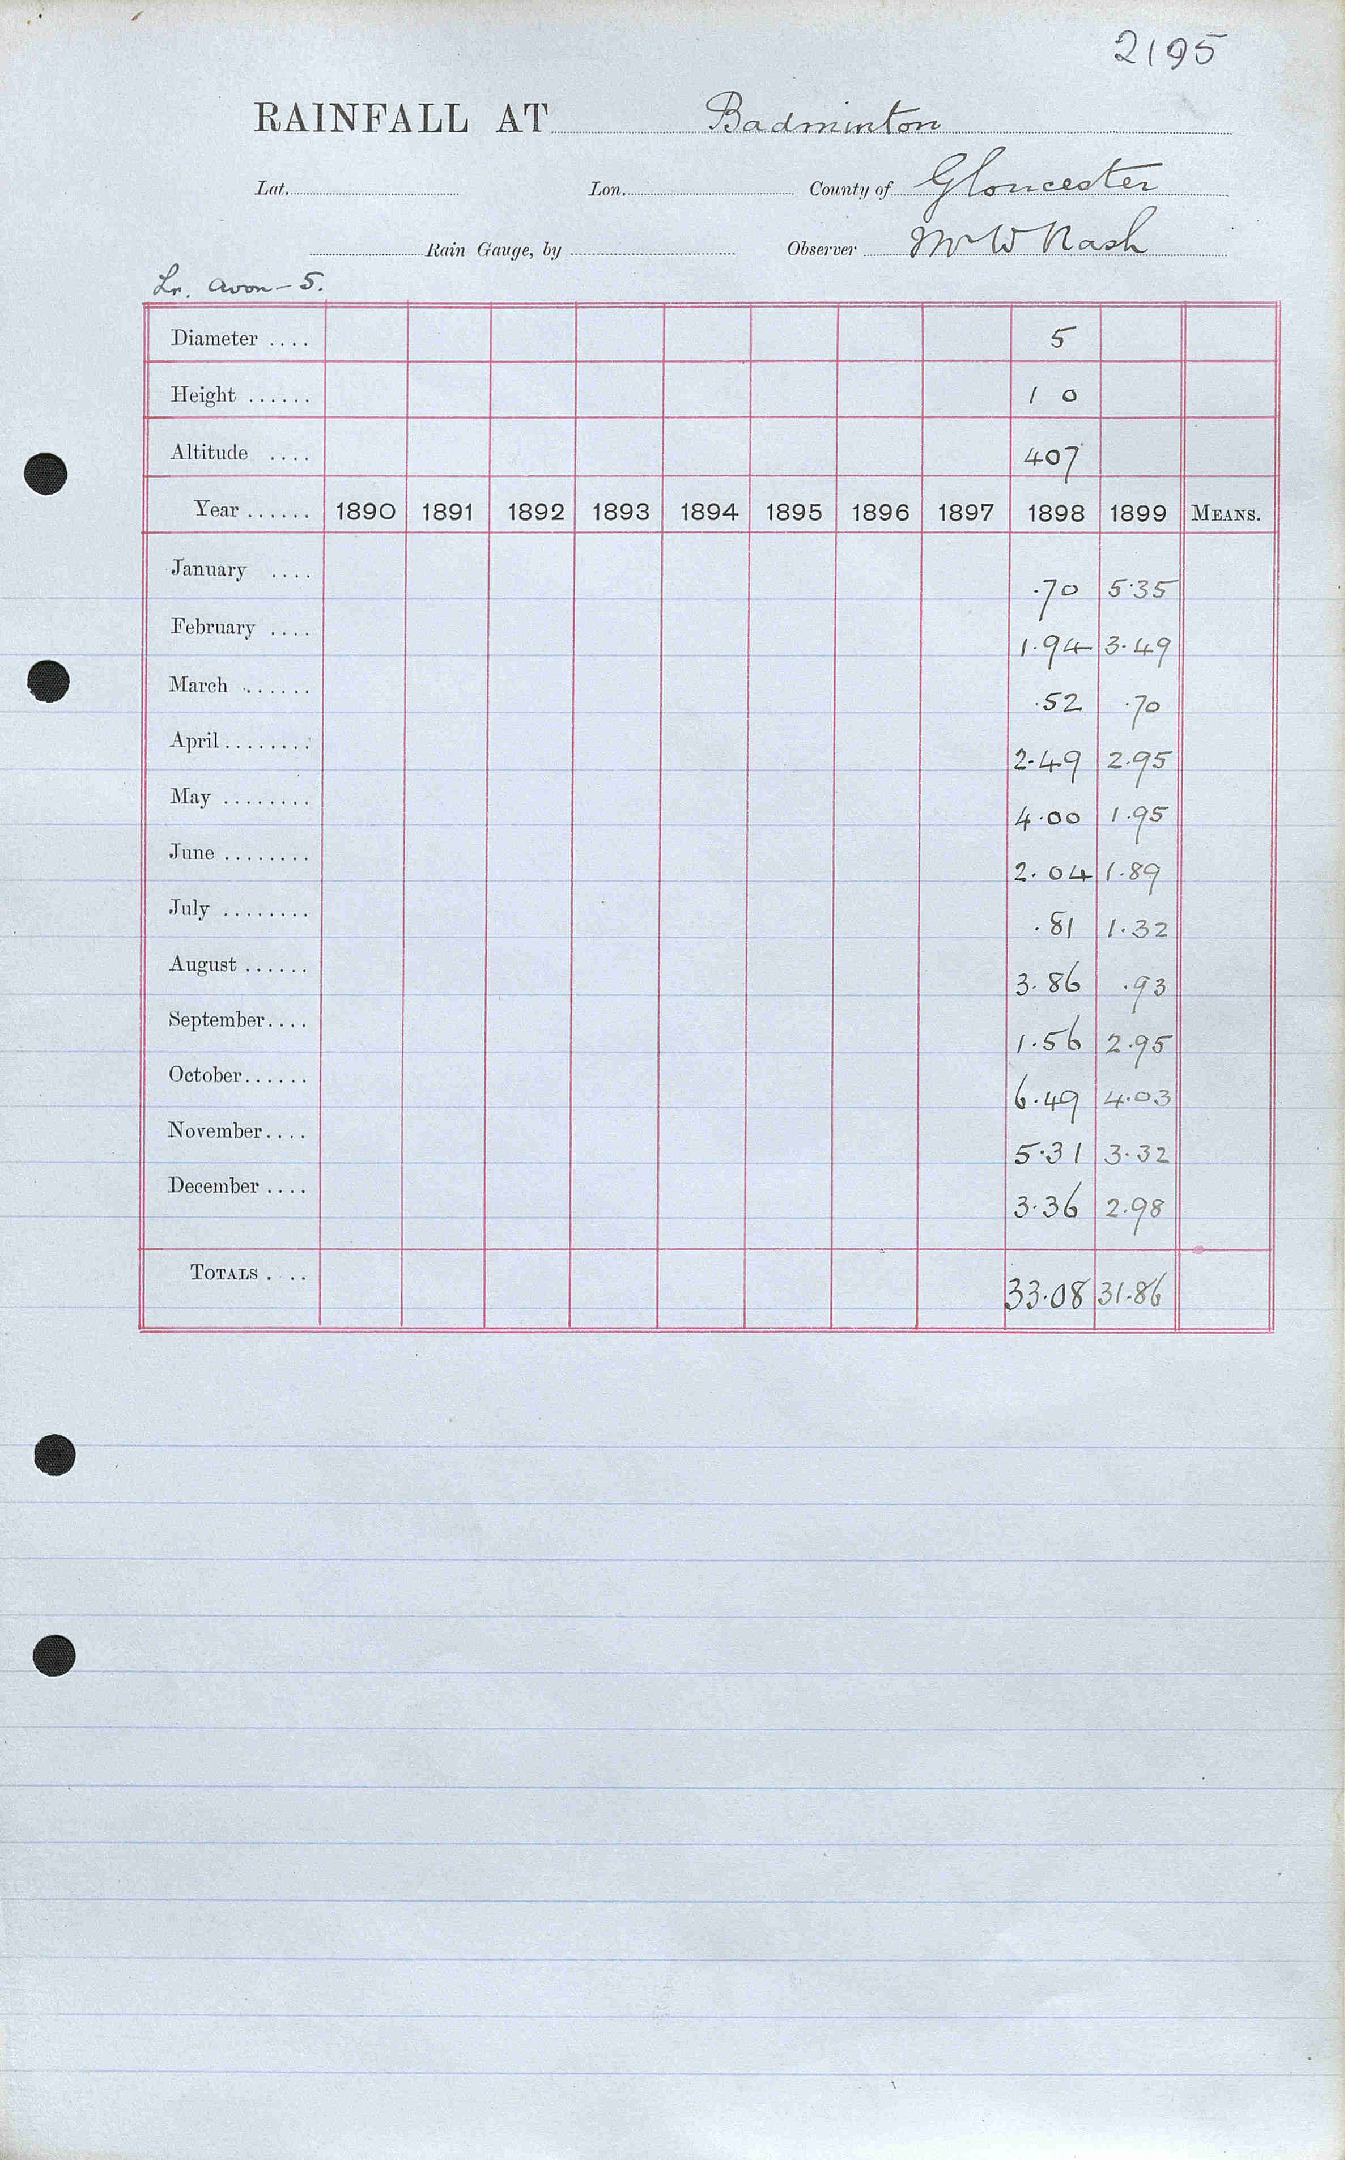 2195
RAINFALL AT Badminton
Lat. Lon. County of Gloucester
Rain Gauge, by Observer Mr W Nash
Lr. Avon – 5.
Diameter .... 5
Height ...... 1 0
Altitude .... 407
Year ...... 1890 1891 1892 1893 1894 1895 1896 1897 1898 1899 MEANS.
January .... .70 5.35
February .... 1.94 3.49
March ...... .52 .70
April ........ 2.49 2.95
May ........ 4.00 1.95
June ........ 2.04 1.89
July ........ .81 1.32
August ...... 3.86 .93
September .... 1.56 2.95
October ...... 6.49 4.03
November .... 5.31 3.32
December .... 3.36 2.98
TOTALS .... 33.08 31.86